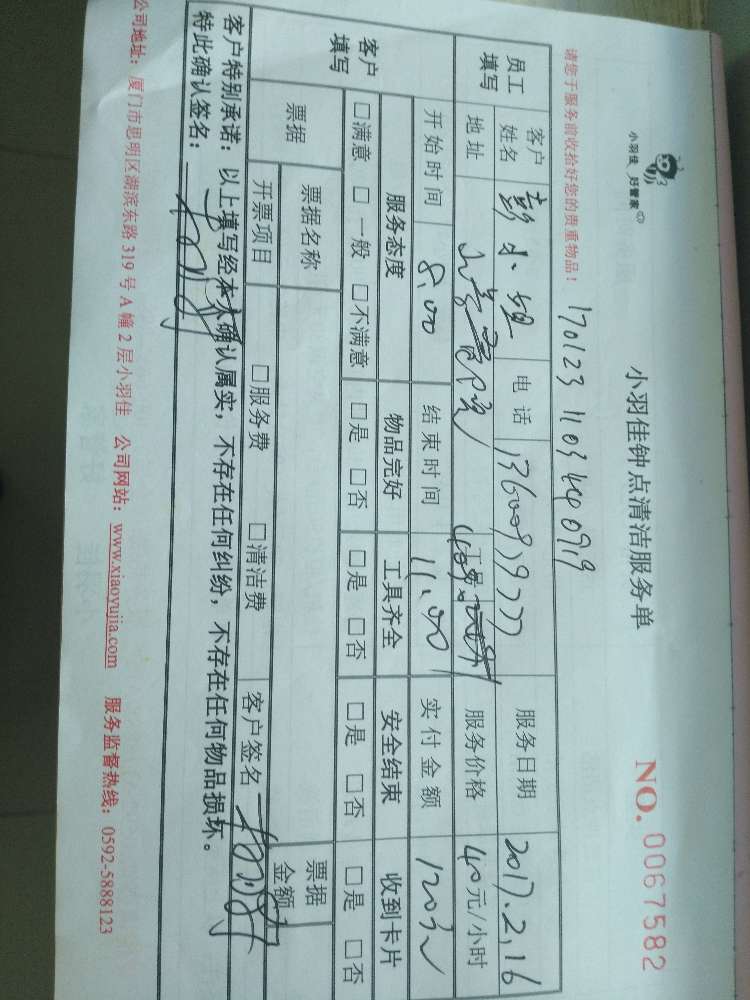 小羽佳 好管家
小羽佳钟点清洁服务单
NO. 0067582
请您于服务前收拾好您的贵重物品！
170123 1103440919
员工填写
客户姓名 彭小姐 电话 服务日期 2017.2.16
地址 服务价格 40元/小时
开始时间 8.00 结束时间 11.00 实付金额 120元
客户填写
服务态度 物品完好 工具齐全 安全结束 收到卡片
□满意 □一般 □不满意 □是 □否 □是 □否 □是 □否 □是 □否
票据 票据名称 票据金额
开票项目 □服务费 □清洁费 客户签名
客户特别承诺：以上填写经本人确认属实，不存在任何纠纷，不存在任何物品损坏。
特此确认签名：
公司地址：厦门市思明区湖滨东路 319 号 A 幢 2 层小羽佳 公司网站：www.xiaoyujia.com 服务监督热线：0592-5888123